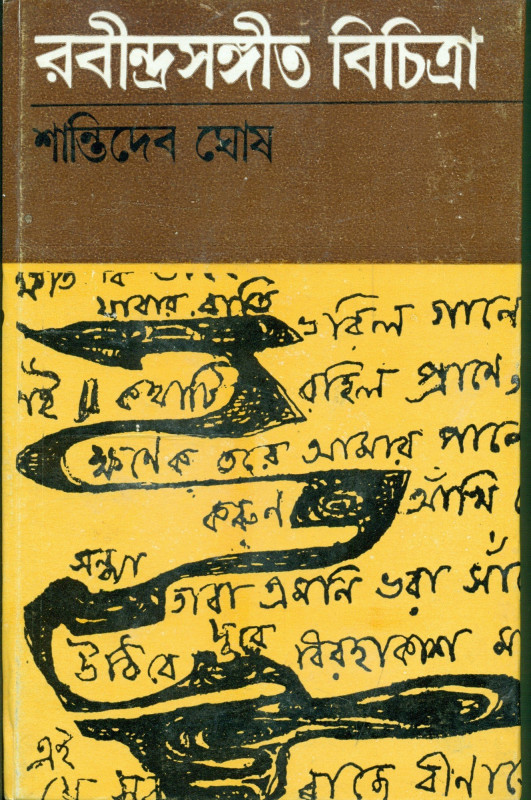 রবীন্দ্রসঙ্গীত বিচিত্রা
শান্তিদেব ঘোষ
ক্ষতি কি
যাবার রাতি
ভরিল গানে
এই কথাটি রহিল প্রাণে
ক্ষণেক তরে আমার পানে
করুণ আঁখি
সন্ধ্যা
তারা এমনি ভরা সাঁ
দূরে
উঠিবে বিরহাকাশ
এই
যে বাজে বীণা